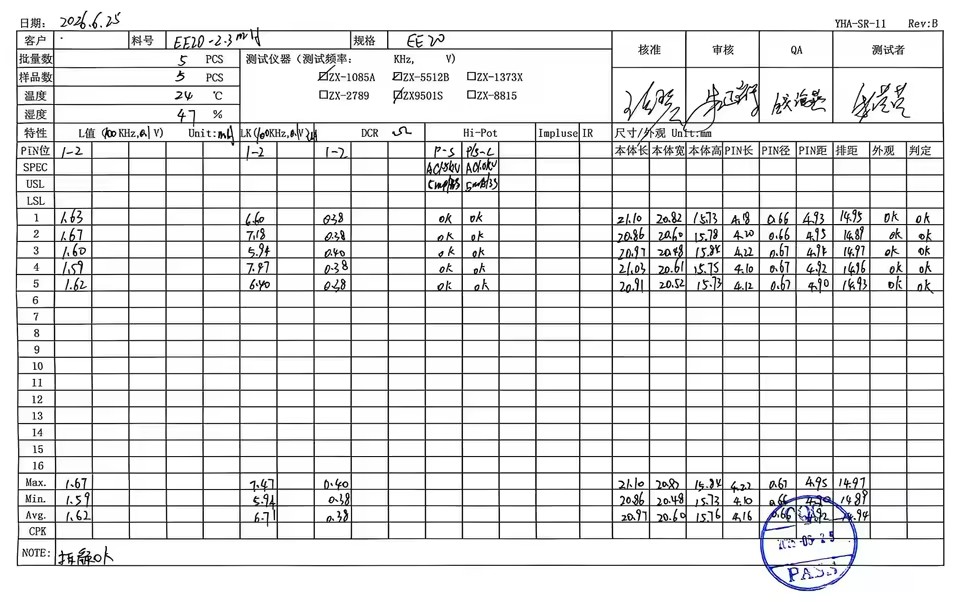 日期: 2026.6.25 YHA-SR-11 Rev:B
客户 料号 EE20-2.3mH 规格 EE20 核准 审核 QA 测试者
批量数 5 PCS 测试仪器(测试频率: KHz, V)
样品数 5 PCS ☑ZX-1085A ☑ZX-5512B □ZX-1373X
温度 24 ℃ □ZX-2789 ☑ZX9501S □ZX-8815
湿度 47 %
特性 L值 (100KHz,0.1V) Unit:mH LK(100KHz,0.1V) DCR Ω Hi-Pot Impluse IR 尺寸/外观 Unit:mm
PIN位 1-2 1-2 1-2 P-S P/S-C 本体长 本体宽 本体高 PIN长 PIN径 PIN距 排距 外观 判定
SPEC
USL
LSL
1 1.63 6.60 0.38 ok ok 21.10 20.82 15.73 4.18 0.66 4.93 14.95 ok ok
2 1.67 7.18 0.38 ok ok 20.86 20.60 15.78 4.20 0.66 4.95 14.89 ok ok
3 1.60 5.94 0.40 ok ok 20.97 20.48 15.84 4.22 0.67 4.94 14.97 ok ok
4 1.59 7.47 0.38 ok ok 21.03 20.61 15.75 4.10 0.67 4.92 14.96 ok ok
5 1.62 6.40 0.38 ok ok 20.91 20.52 15.73 4.12 0.67 4.90 14.93 ok ok
6
7
8
9
10
11
12
13
14
15
16
Max. 1.67 7.47 0.40 21.10 20.82 15.84 4.22 0.67 4.95 14.97
Min. 1.59 5.94 0.38 20.86 20.48 15.73 4.10 0.66 4.90 14.89
Avg. 1.62 6.71 0.38 20.97 20.60 15.76 4.16 0.66 4.92 14.94
CPK
NOTE: OK
PASS